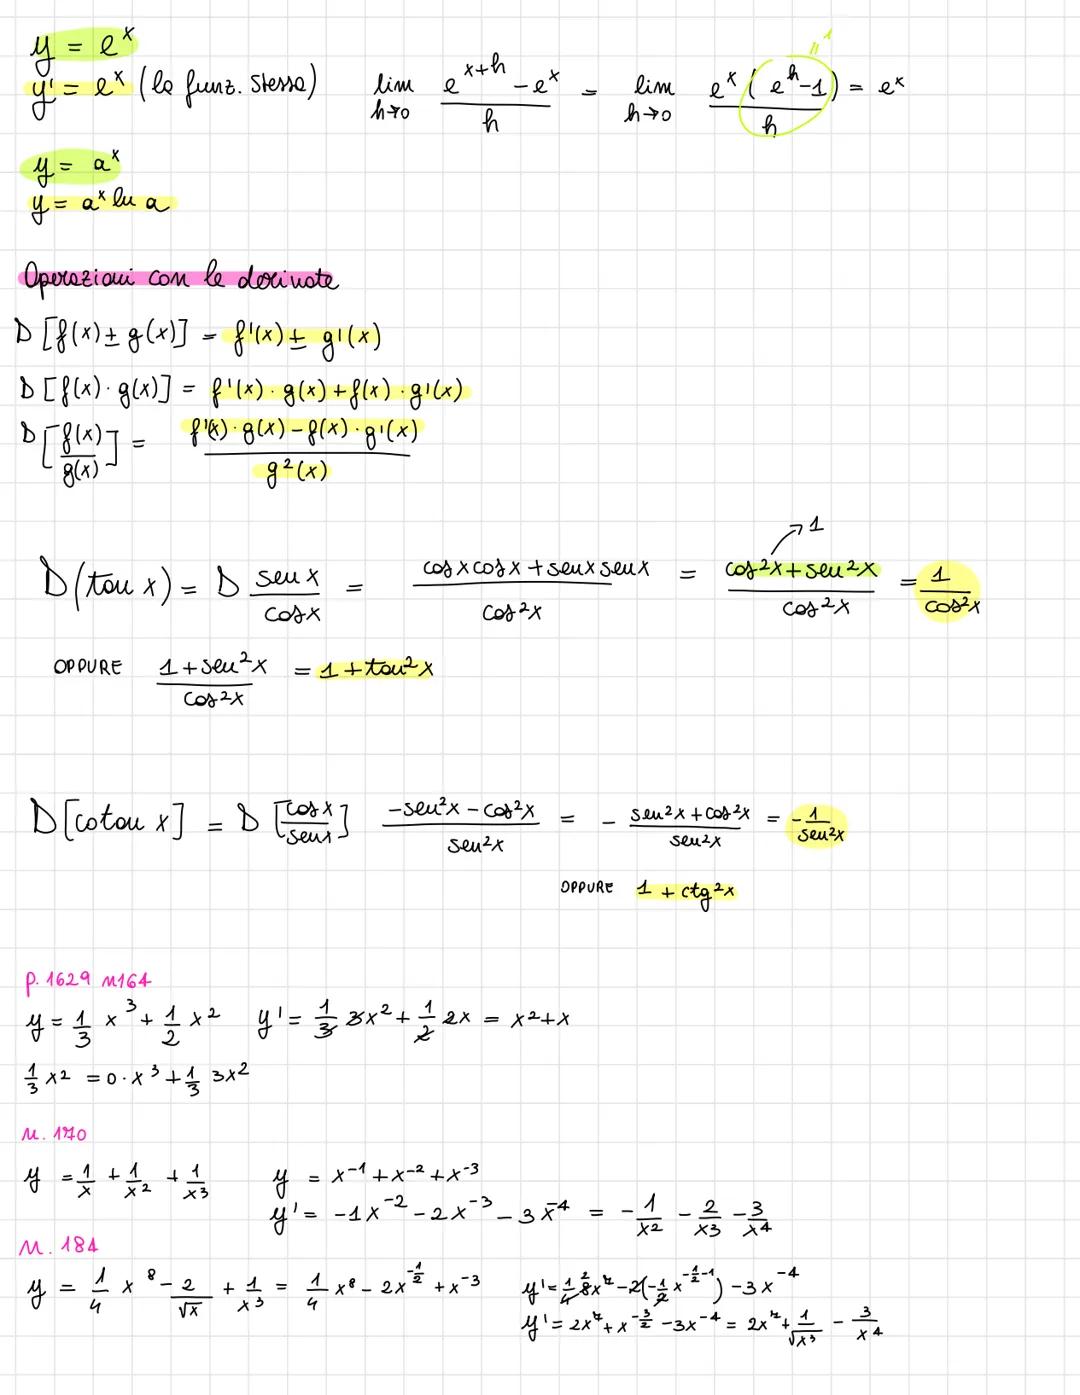 y = e^x
y' = e^x (la funz. stessa) lim h→0 (e^(x+h) - e^x)/h = lim h→0 e^x (e^h - 1)/h = e^x
= 1
y = a^x
y = a^x ln a
Operazioni con le derivate
D [f(x) ± g(x)] = f'(x) ± g'(x)
D [f(x) · g(x)] = f'(x) · g(x) + f(x) · g'(x)
D [f(x)/g(x)] = (f'(x) · g(x) - f(x) · g'(x))/g²(x)
→ 1
D(tan x) = D sen x/cos x = (cos x cos x + sen x sen x)/cos²x = (cos²x + sen²x)/cos²x = 1/cos²x
OPPURE (1 + sen²x)/cos²x = 1 + tan²x
D[cotan x] = D [cos x/sen x] (-sen²x - cos²x)/sen²x = - (sen²x + cos²x)/sen²x = - 1/sen²x
OPPURE 1 + ctg²x
p. 1629 n164
y = 1/3 x³ + 1/2 x² y' = 1/3 3x² + 1/2 2x = x² + x
1/3 x² = 0 · x³ + 1/3 3x²
n. 170
y = 1/x + 1/x² + 1/x³ y = x^-1 + x^-2 + x^-3
y' = -1x^-2 - 2x^-3 - 3x^-4 = - 1/x² - 2/x³ - 3/x⁴
n. 184
y = 1/4 x⁸ - 2/√x + 1/x³ = 1/4 x⁸ - 2x^(-1/2) + x^-3 y' = 1/4 8² x⁷ - 2(-1/2 x^(-1/2-1)) - 3x^-4
y' = 2x⁷ + x^(-3/2) - 3x^-4 = 2x⁷ + 1/√x³ - 3/x⁴